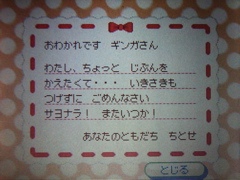 おわかれです　ギンガさん
わたし、ちょっと　じぶんを
かえたくて・・・　いきさきも
つげずに　ごめんなさい
サヨナラ！　またいつか！
あなたのともだち　ちとせ
とじる